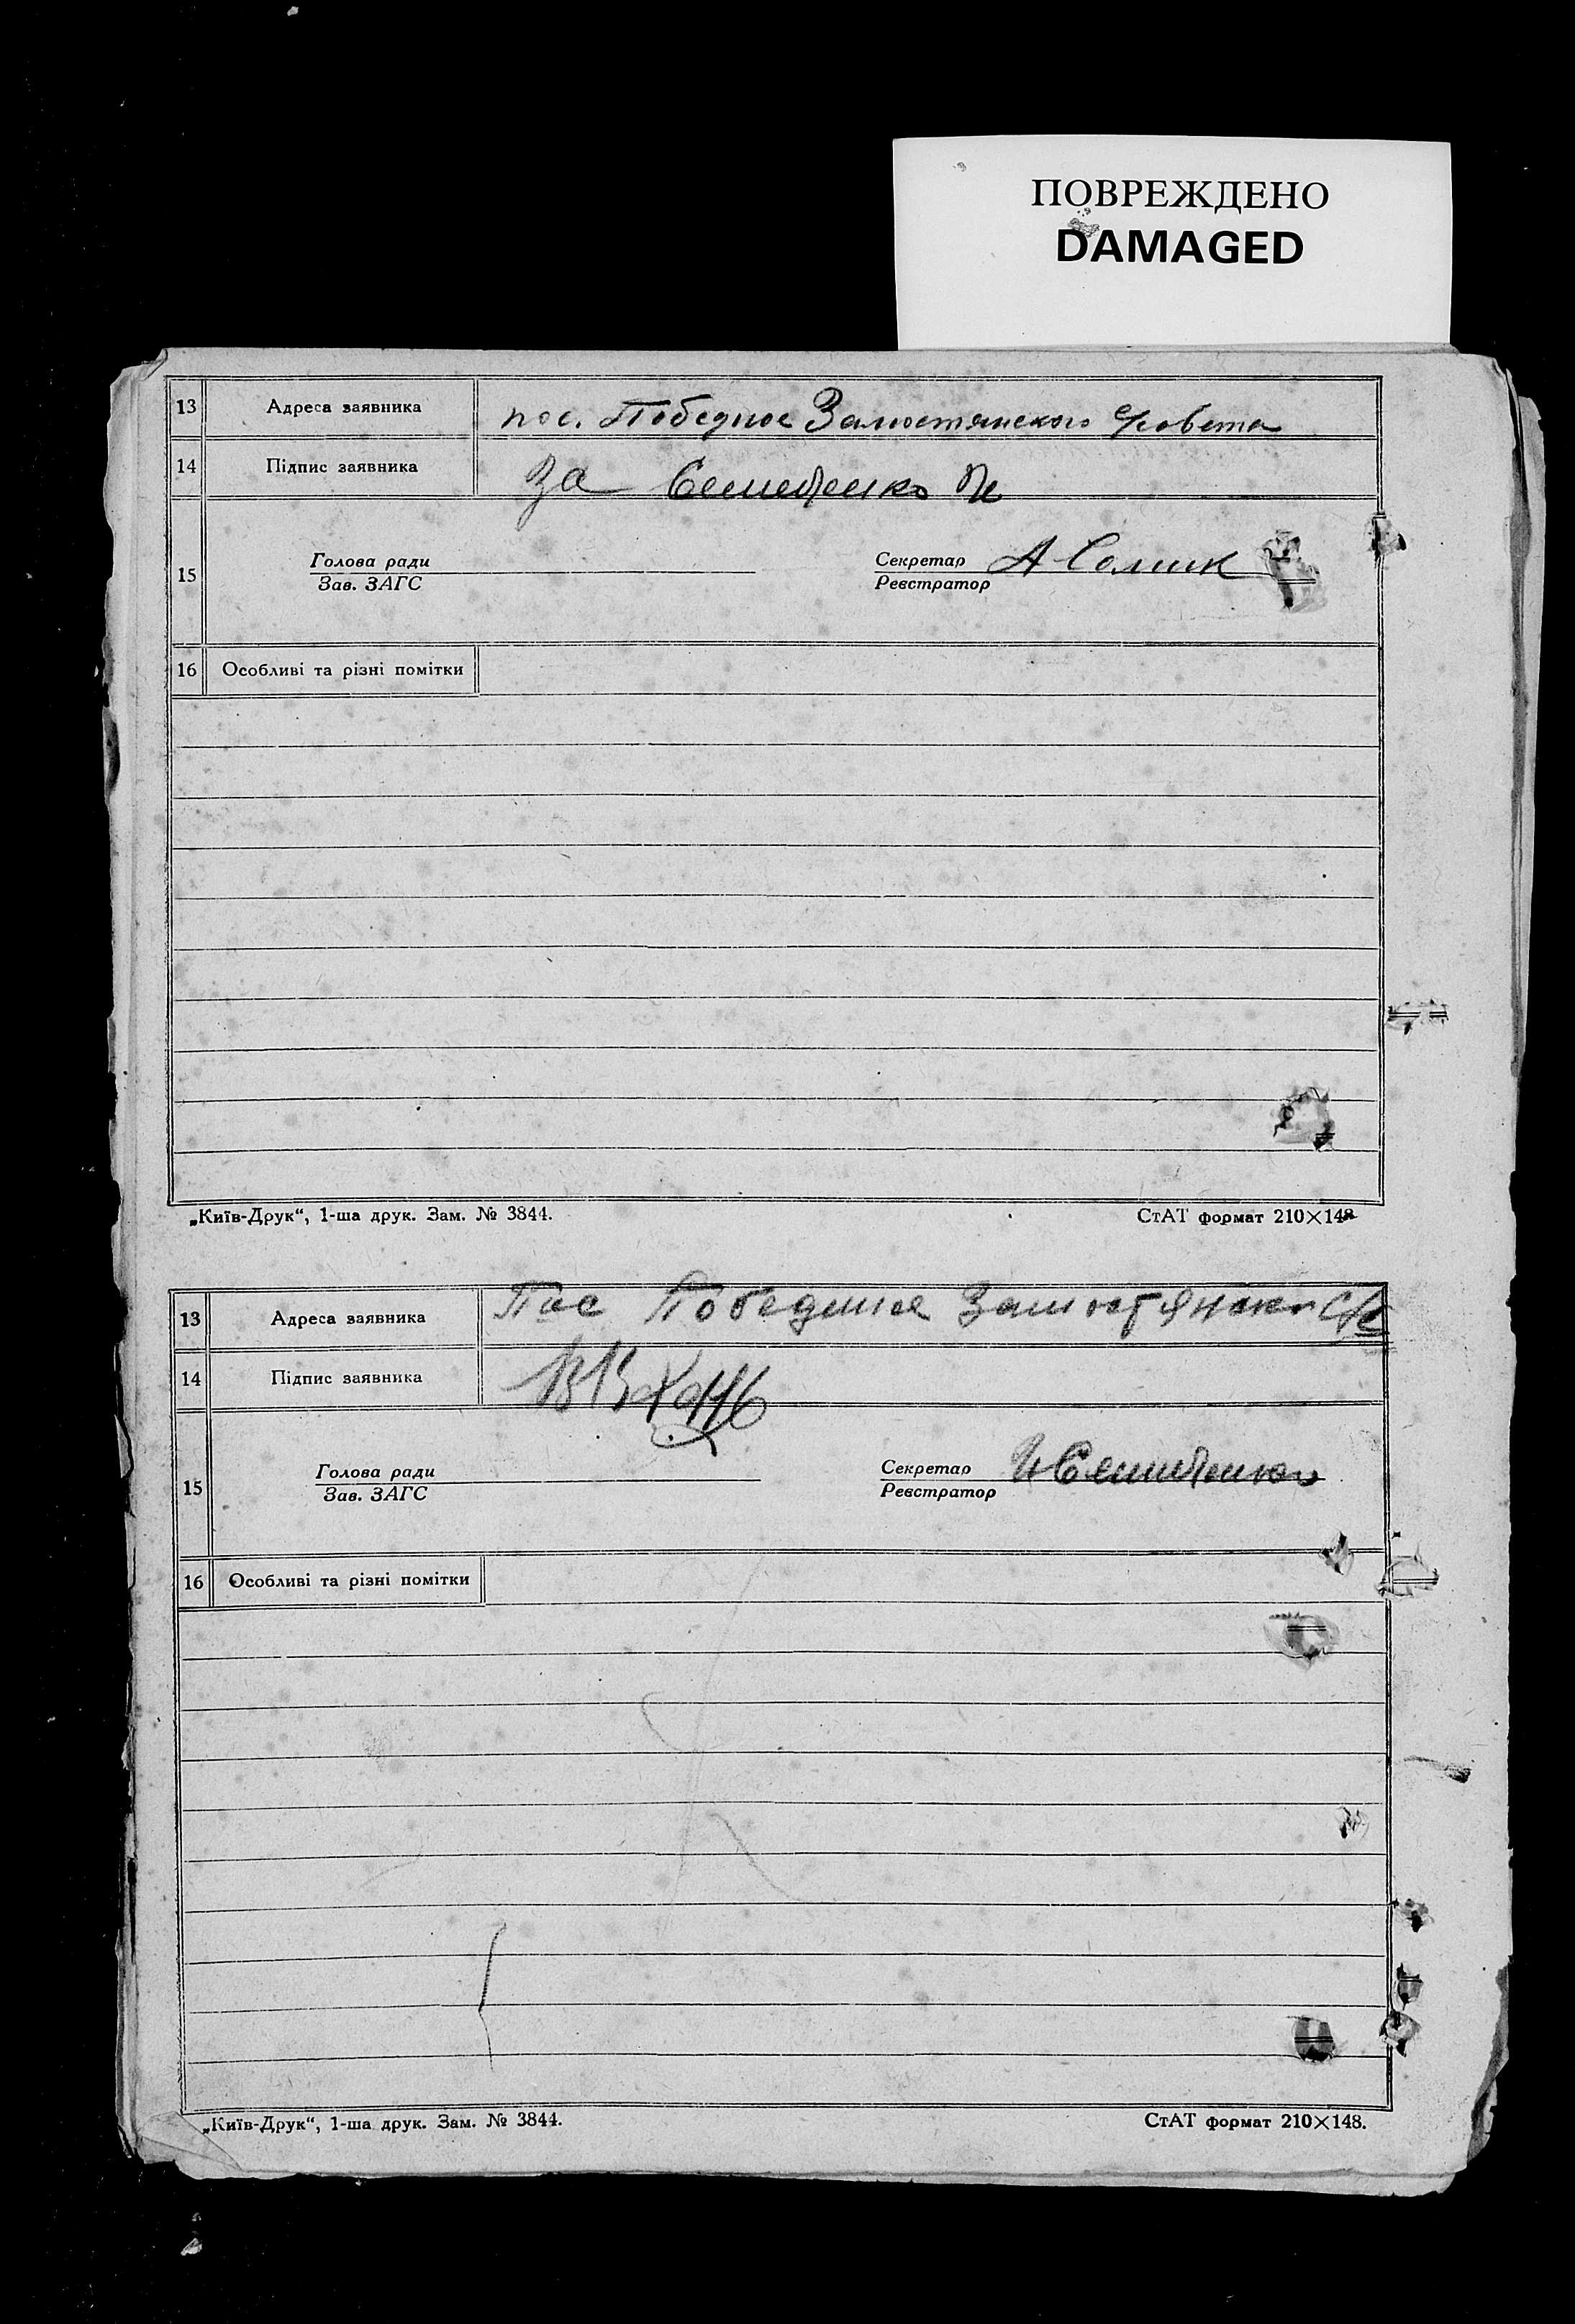 ПОВРЕЖДЕНО
DAMAGED
13 Адреса заявника пос. Победное Замостянского с/совета
14 Підпис заявника За Семибенко
Голова ради Секретар А Солик
15
Зав. ЗАГС Реєстратор
16 Особливі та різні помітки
„Київ-Друк“, 1-ша друк. Зам. № 3844. СтАТ формат 210×148
13 Адреса заявника Пос Победное Замостянско с/с
14 Підпис заявника
Голова ради Секретар
15
Зав. ЗАГС Реєстратор
16 Особливі та різні помітки
„Київ-Друк“, 1-ша друк. Зам. № 3844. СтАТ формат 210×148.